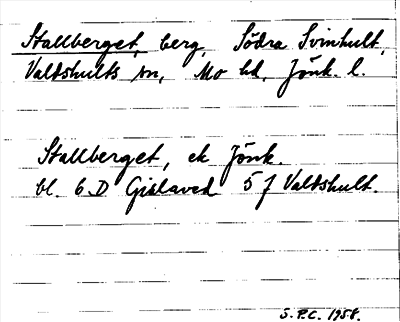 Stallberget, berg, Södra Svinhult,
Valdshults sn, Mo hd, Jönk. l.
Stallberget, ek Jönk.
bl. 6D Gislaved 5 f Valdshult.
S.P.C. 1958.